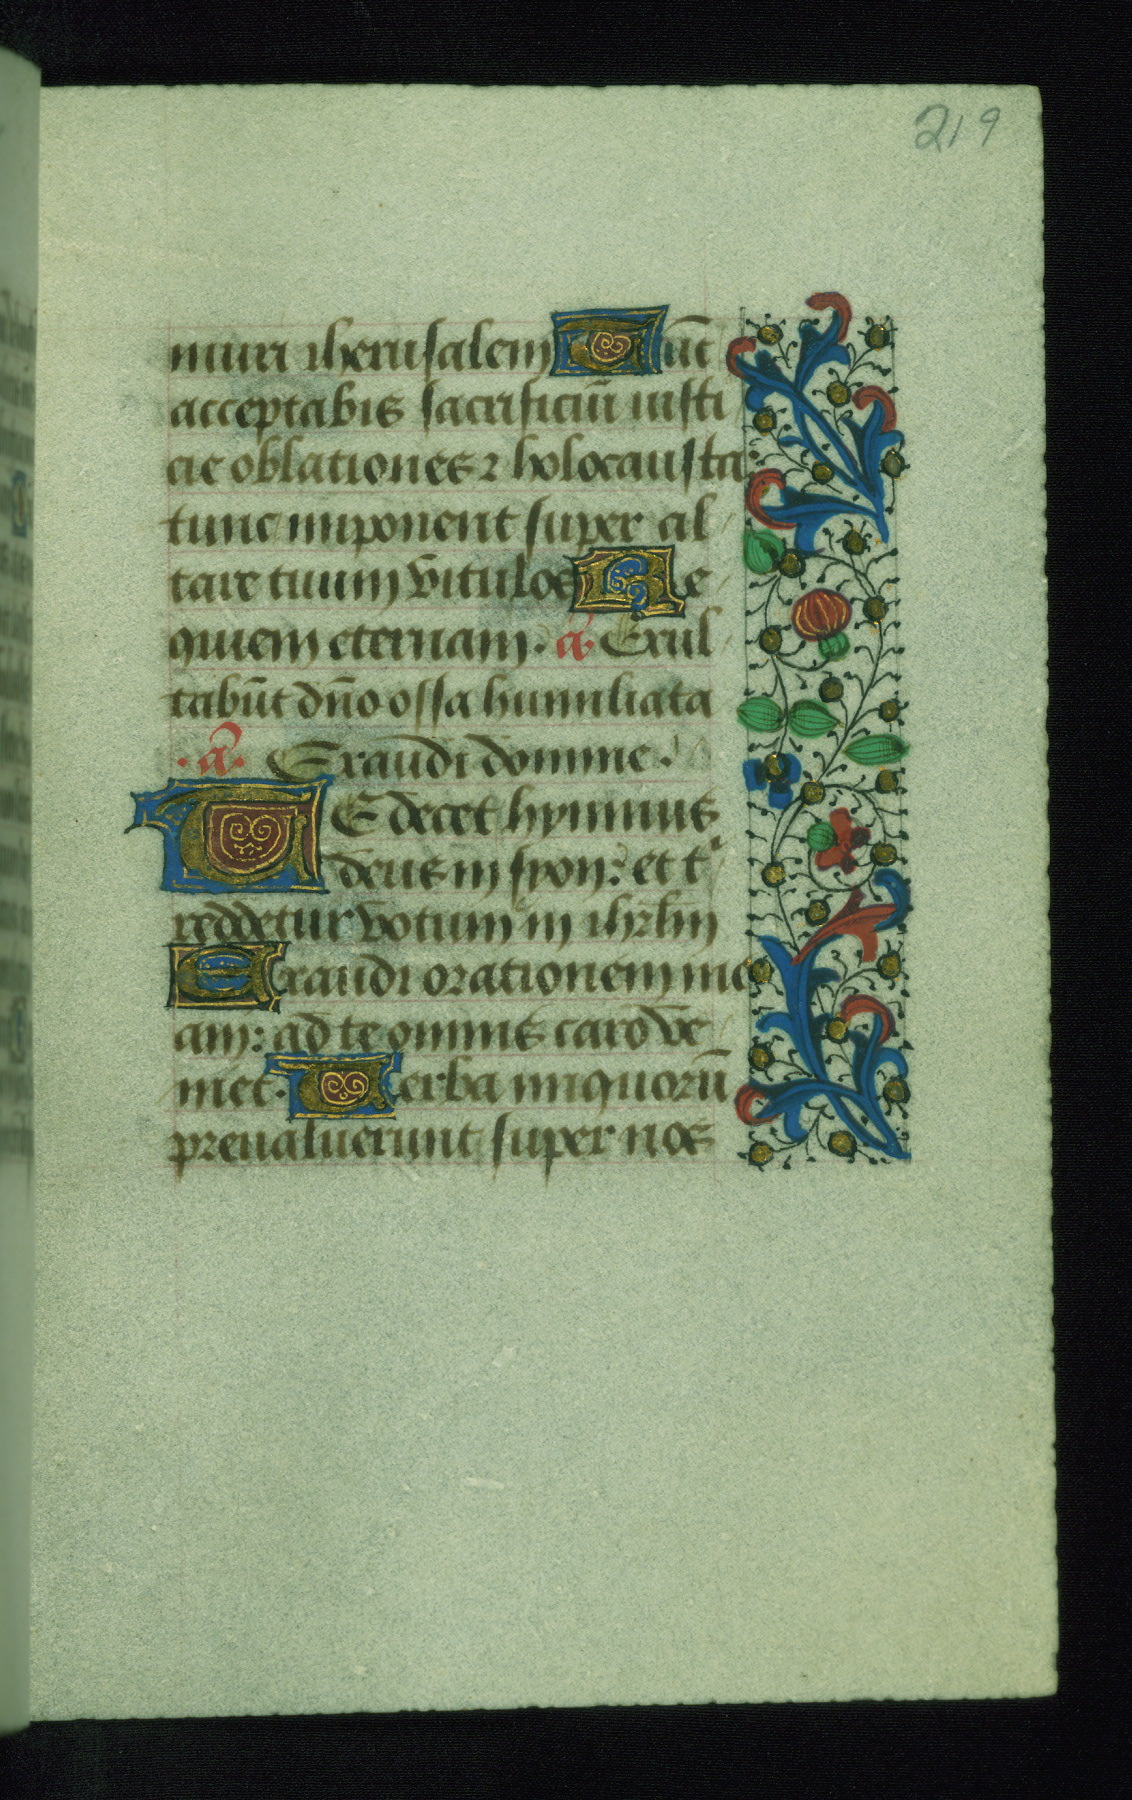 219
muri iherusalem Tūc
acceptabis sacrificiū iusti
cie oblationes ⁊ holocausta:
tunc imponent super al
tare tuum vitulos Re
quiem eternam. a. Exul
tabūt dn̄o ossa humiliata
.a. Exaudi domine.
TE decet hymnus
deus in syon: et t
reddetur votum in ihrlm
Exaudi orationem me
am: ad te omnis caro ve
niet. Verba iniquorū
preualuerunt super nos